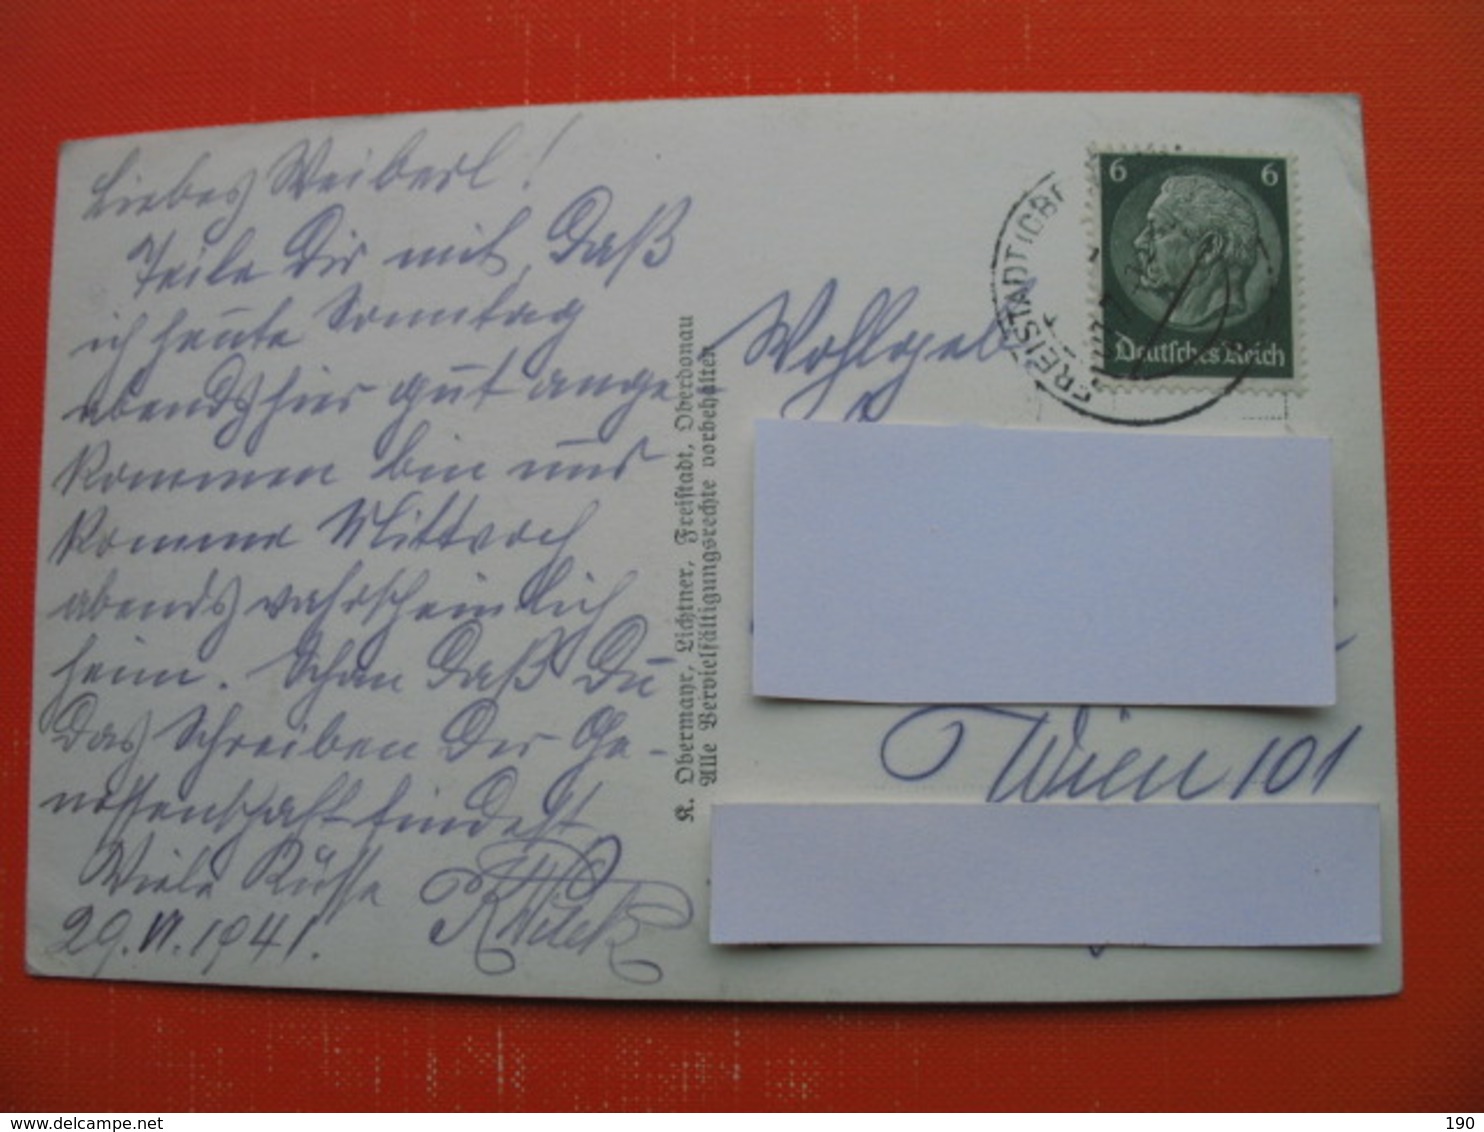 Liebes Weiberl!
Teile Dir mit, daß
ich heute Sonntag
abends hier gut ange-
kommen bin und
komme Mittwoch
abends wahrscheinlich
heim. Schau daß Du
das Schreiben der Ge-
nossenschaft findest.
Viele Küsse
29.VI.1941.
K. Obermayr, Lichtner, Freistadt, Oberdonau
Alle Vervielfältigungsrechte vorbehalten
FREISTADT (OB
6 6
Deutsches Reich
Wohlgeb
Wien 101
delcampe.net
190